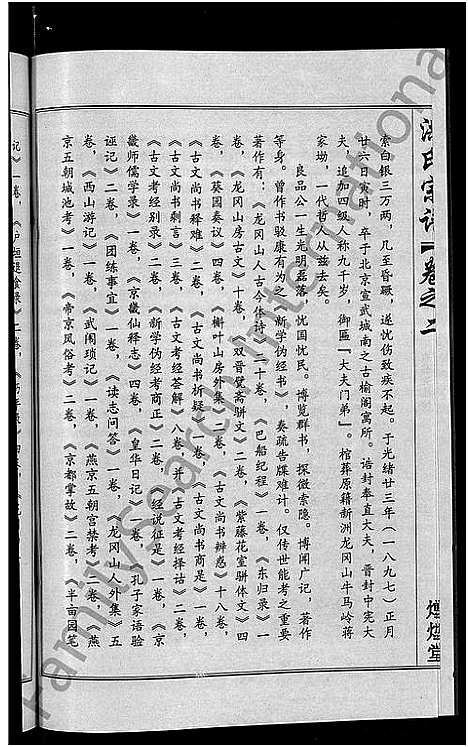 洪氏宗谱 卷之二
煌煌堂
索白银三万两，几至昏厥，遂忧伤致疾不起。于光绪廿三年（一八九七）正月
廿六日寅时，卒于北京宣武城南之古榆阁寓所。诰封奉直大夫，晋封中宪大
夫，追加四级人称九千岁，御匾『大夫门弟』。棺葬原籍新洲龙冈山牛马岭蒋
家坳，一代哲人从兹去矣。
良品公一生光明磊落，忧国忧民。博览群书，探微索隐。博闻广记，著作
等身。曾作书驳康有为之《新学伪经书》，奏疏告牒难计。仅传世能考之重要
著作有：《龙冈山人古今体诗》二十卷，《巴船纪程》一卷，《东归录》一
卷，《龙冈山房古文》十卷，《双晋甓斋骈文》二卷，《紫藤花室骈体文》四
卷，《葵园奏议》四卷，《榭叶山房外集》二卷，《古文尚书辨惑》十八卷，
《古文尚书释难》二卷，《古文尚书析疑》一卷，《古文尚书商是》一卷，
《古文尚书剩言》三卷，《古文考经荟解》八卷，并《古文考经择诂》二卷，
《古文考经别录》二卷，《新学伪经考商正》二卷，《经说征是》一卷，《京
畿师儒学录》一卷，《京畿仙释志》四卷，《皇华日记》一卷，《孔子家语验
诬记》二卷，《团练事宜》一卷，《读志问答》一卷，《龙冈山人外集》五
卷，《西山游记》一卷，《武闱琐记》一卷，《燕京五朝宫禁考》二卷，《燕
京五朝城池考》一卷，《帝京风俗考》二卷，《京都掌故》二卷，《半亩园笔
记》一卷，
FamilySearch International